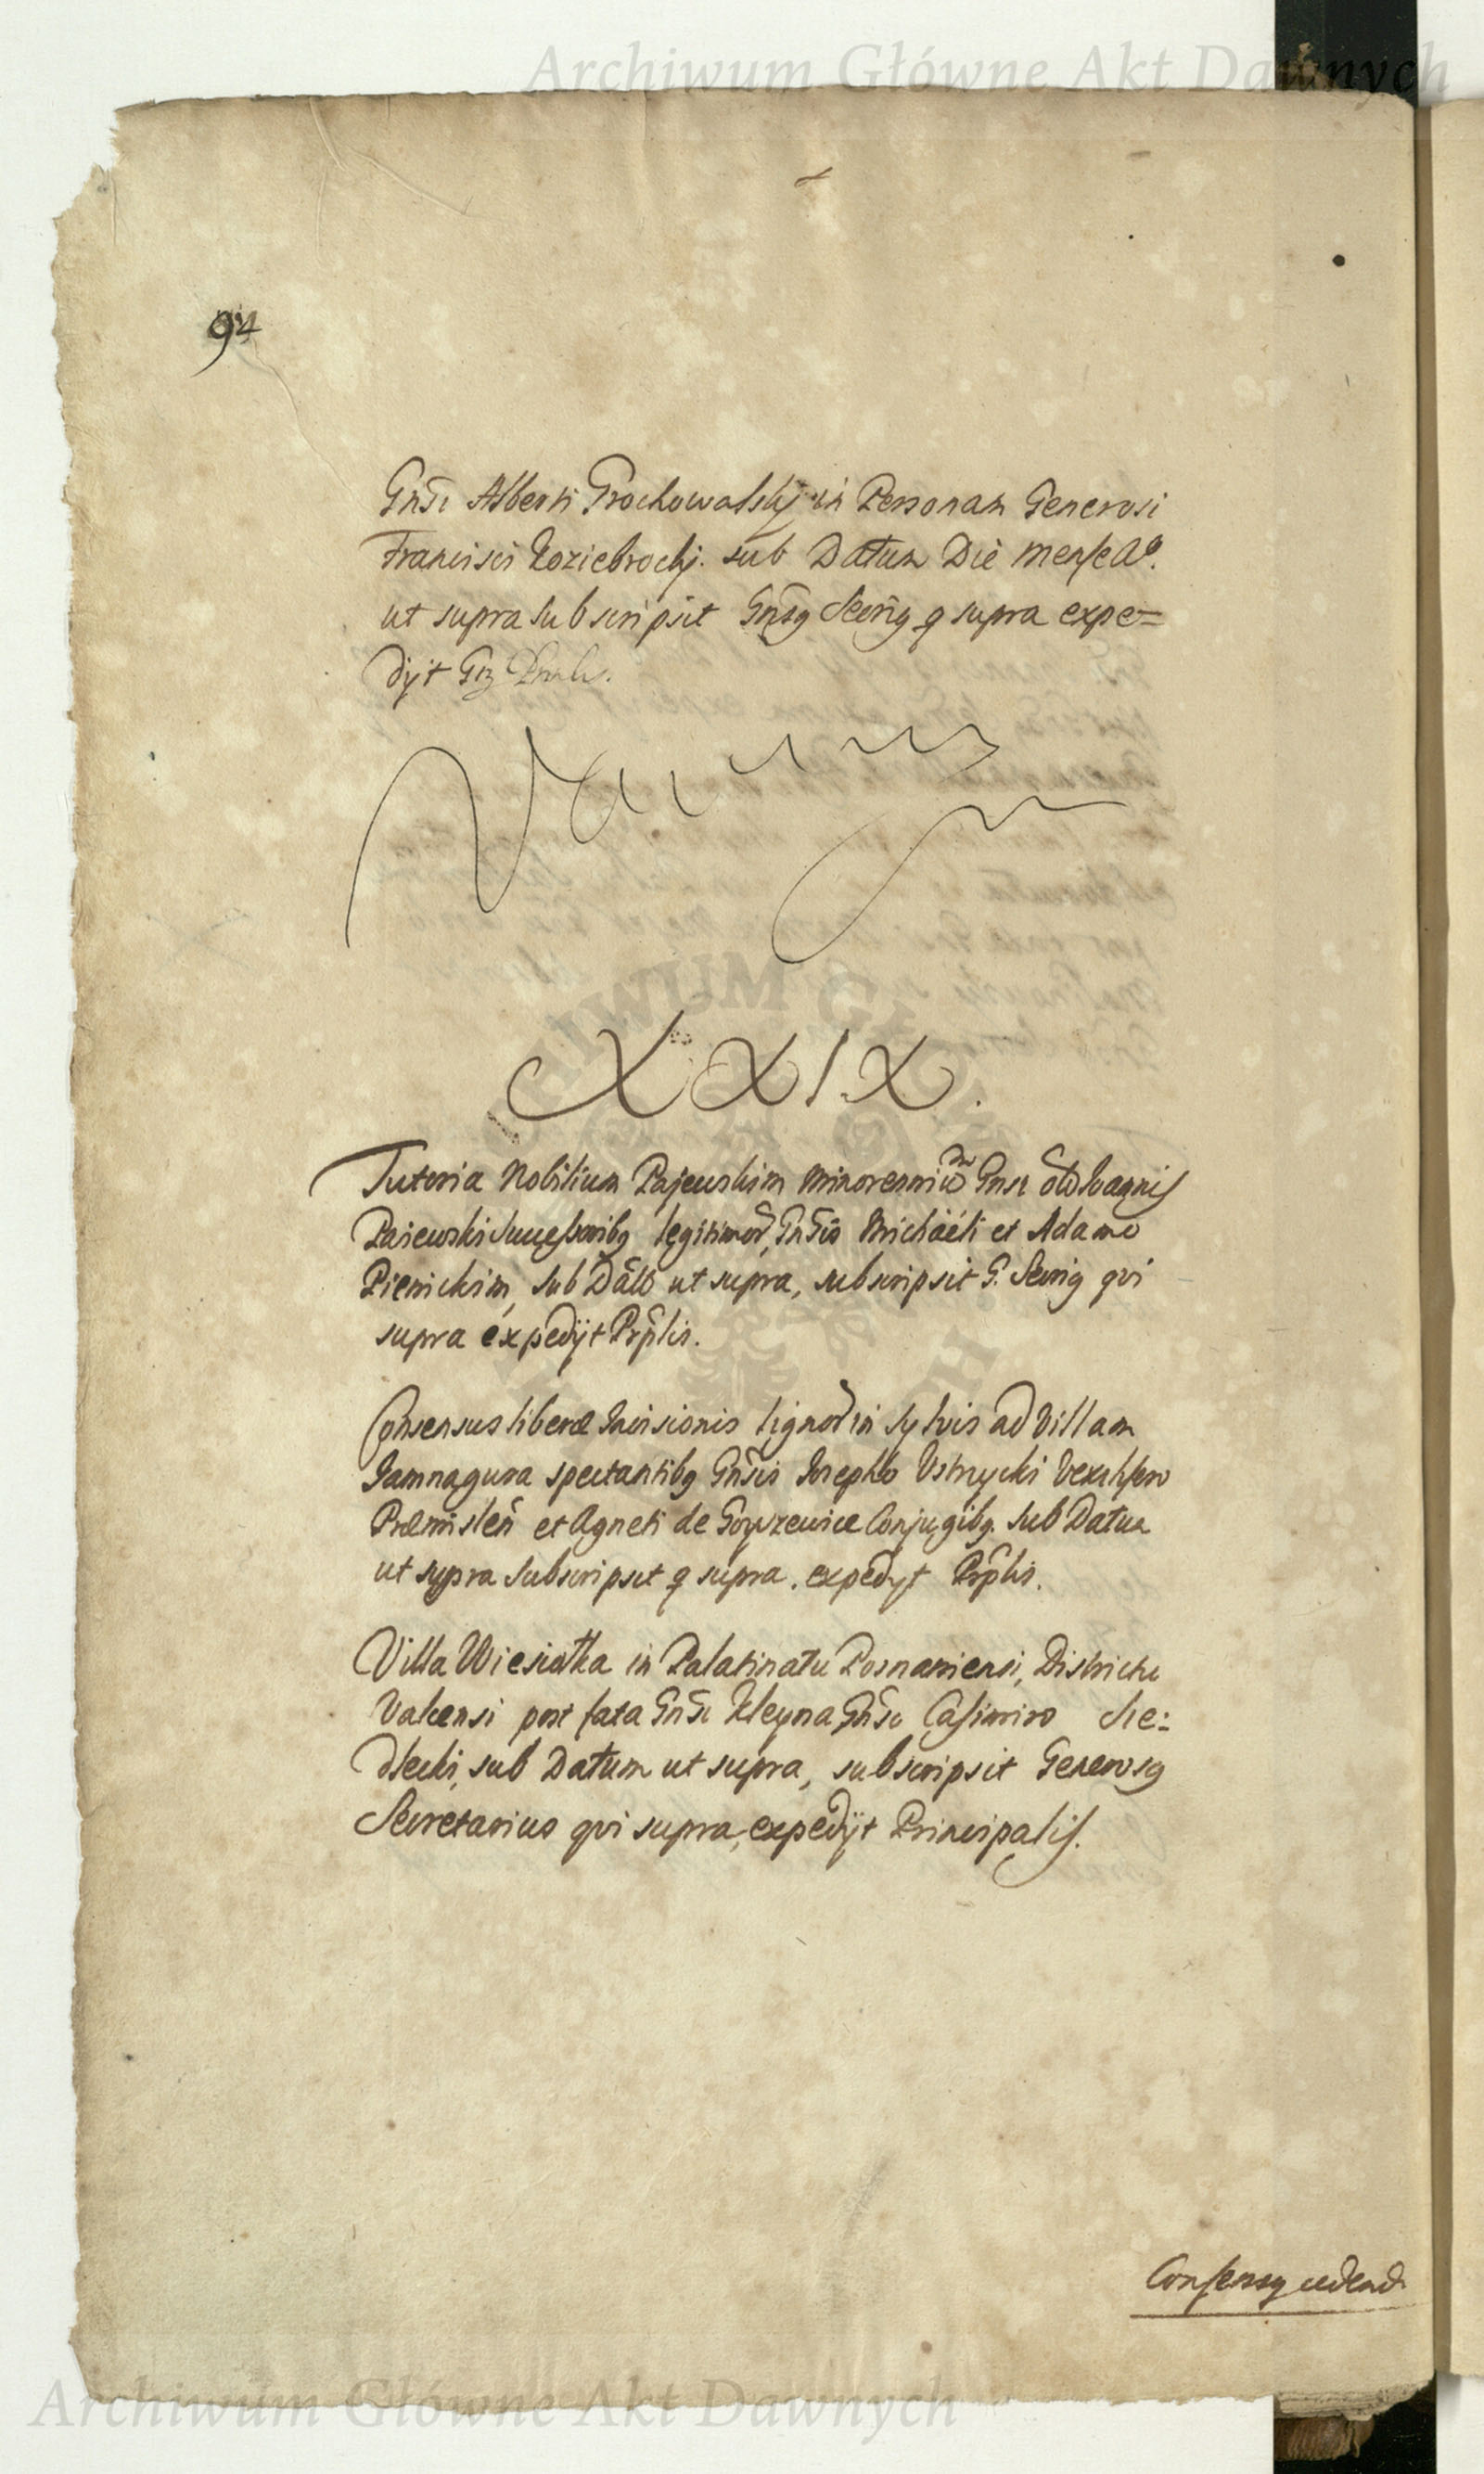 Archiwum Główne Akt Dawnych
94
Gnsi Alberti Grochowalskj in Personam Generosi
Francisci Koziebrockj. sub Datum Die Mense Aº.
ut supra subscripsit Gnsg Secrig q supra expe=
dijt
Vacuum
XXIX.
Tutoria Nobilium Pajewskim Minorennium Gnsi olim Joannis
Paiewski Successoribg legitimor, Gnsis Michaëli et Adamo
Pienickim, sub Datto ut supra, subscripsit G. Secrig qvi
supra expedijt Prplis.
Consensus liberæ Incisionis lignor in sylvis ad Villam
Jamnagura spectantibg Gnsis Josepho Ustrycki Vexillifero
Præmislen et Agneti de Gorzewice Conjugibg. sub Datum
ut supra subscripsit q supra. expedyt Prplis.
Villa Wiesiotka in Palatinatu Posnaniensi, Districtu
Valcensi post fata Gnsi Kleyna Gnso Casimiro Sie:
dlecki, sub Datum ut supra, subscripsit Generosg
Secretarius qvi supra, expedijt Principalis.
Consensg cedend
Archiwum Główne Akt Dawnych